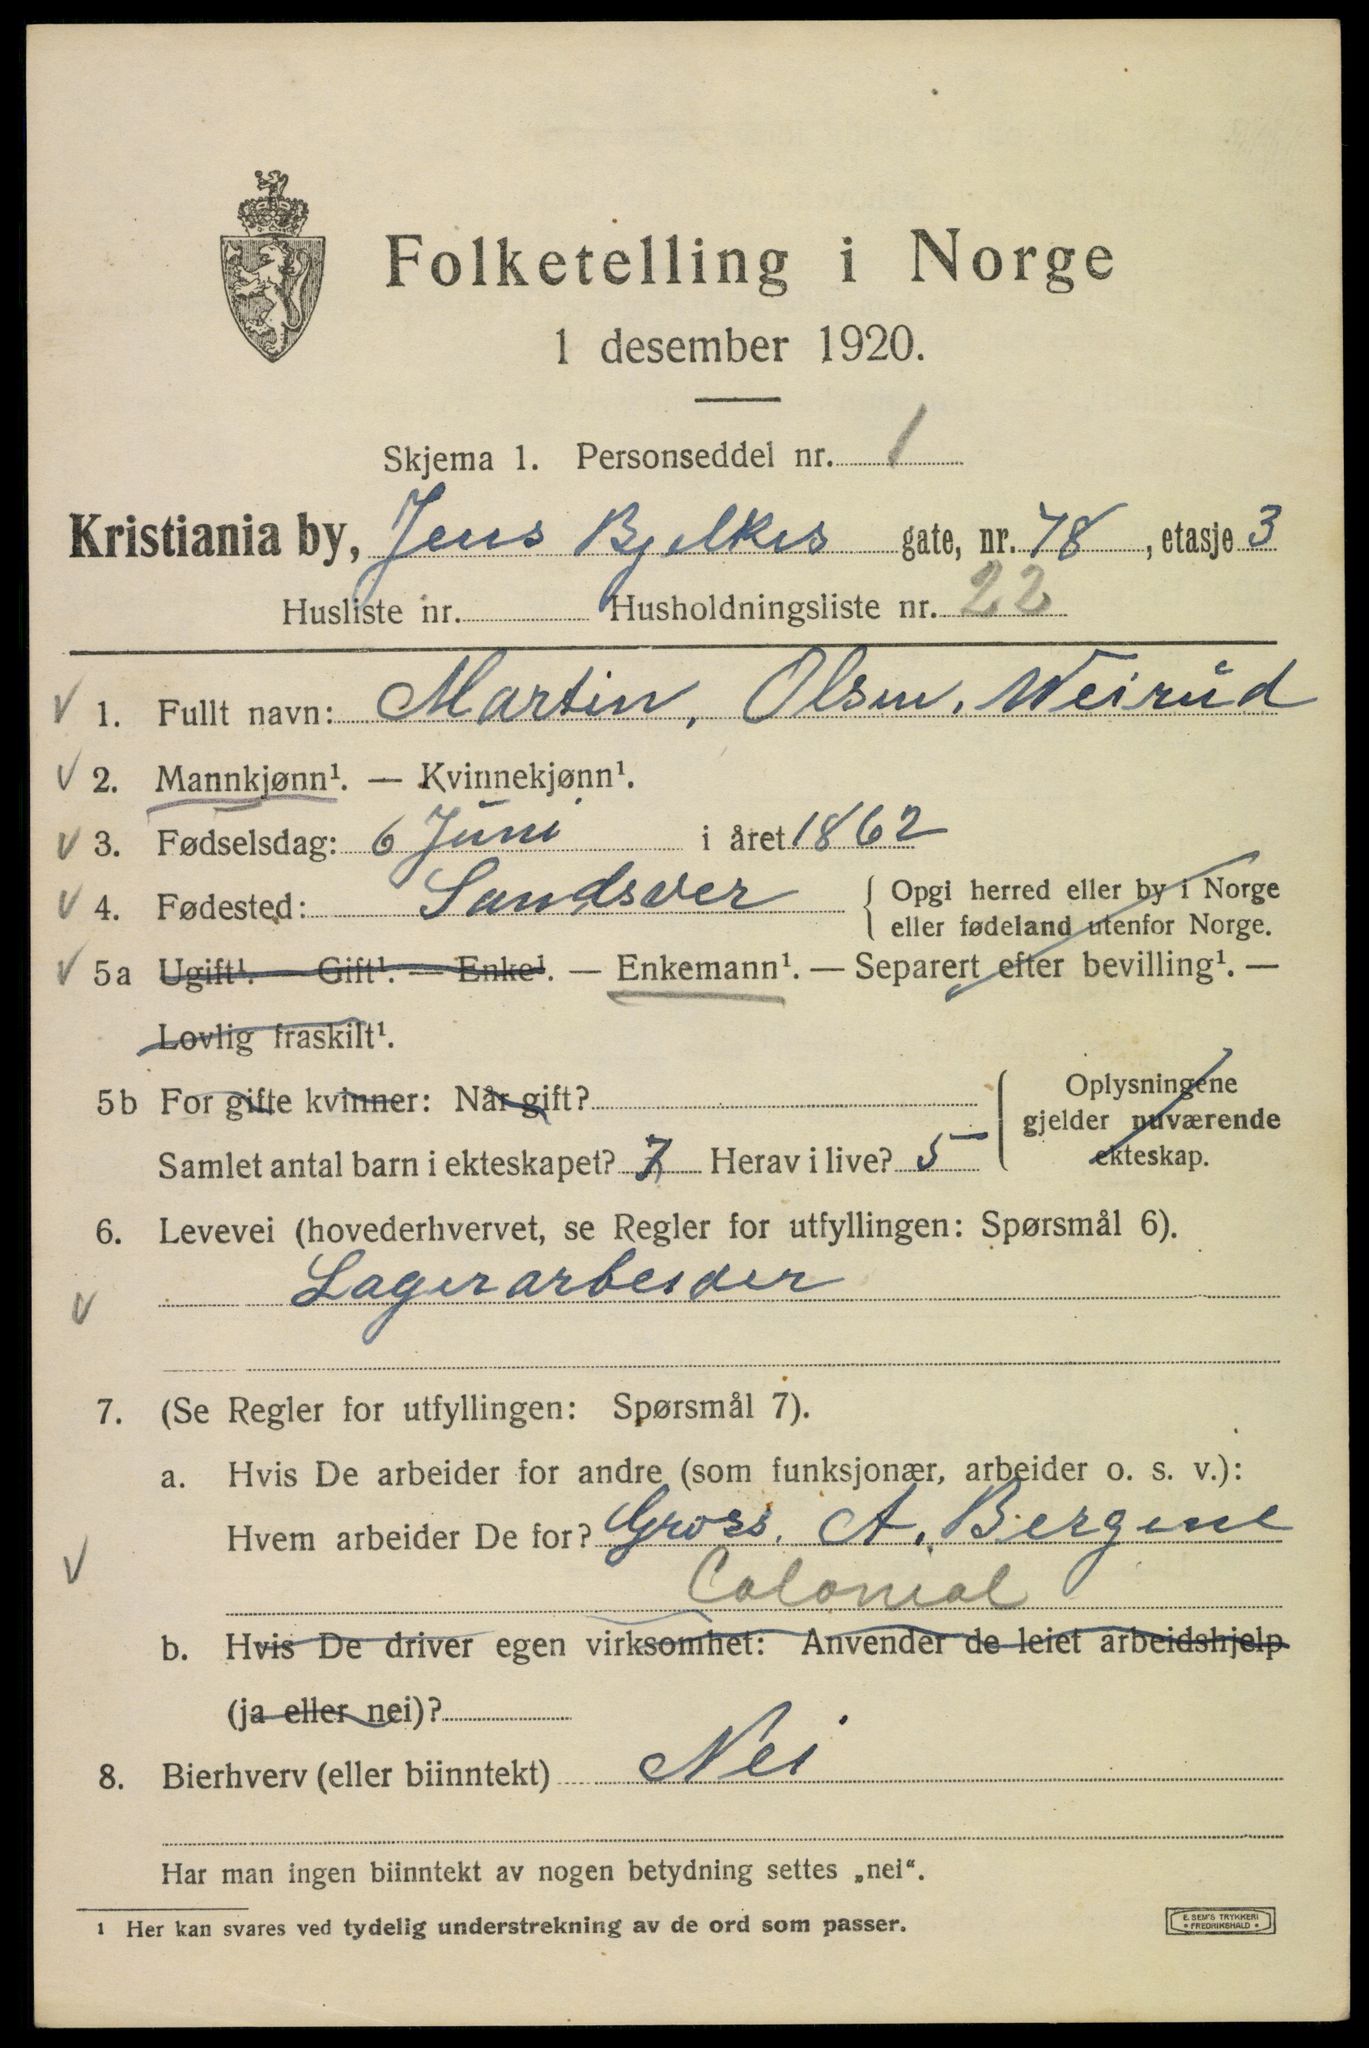 Folketelling i Norge
1 desember 1920.
Skjema 1. Personseddel nr. 1
Kristiania by, Jens Bjelkes gate, nr. 78, etasje 3
Husliste nr. Husholdningsliste nr. 22
√ 1. Fullt navn: Martin, Olsen, Weirud
√ 2. Mannkjønn¹. — Kvinnekjønn¹.
√ 3. Fødselsdag: 6 Juni i året 1862
√ 4. Fødested: Sandsver { Opgi herred eller by i Norge
eller fødeland utenfor Norge.
√ 5a Ugift¹. — Gift¹. — Enke¹. — Enkemann¹. — Separert efter bevilling¹. —
Lovlig fraskilt¹.
5b For gifte kvinner: Når gift? { Oplysningene
gjelder nuværende
Samlet antal barn i ekteskapet? 7 Herav i live? 5 ekteskap.
6. Levevei (hovederhvervet, se Regler for utfyllingen: Spørsmål 6).
√ Lagerarbeider
7. (Se Regler for utfyllingen: Spørsmål 7).
a. Hvis De arbeider for andre (som funksjonær, arbeider o. s. v.):
Hvem arbeider De for? Gross. A. Bergene
√ Colonial
b. Hvis De driver egen virksomhet: Anvender de leiet arbeidshjelp
(ja eller nei)?
8. Bierhverv (eller biinntekt) Nei
Har man ingen biinntekt av nogen betydning settes „nei“.
¹ Her kan svares ved tydelig understrekning av de ord som passer.
E. SEM'S TRYKKERI
• FREDRIKSHALD •